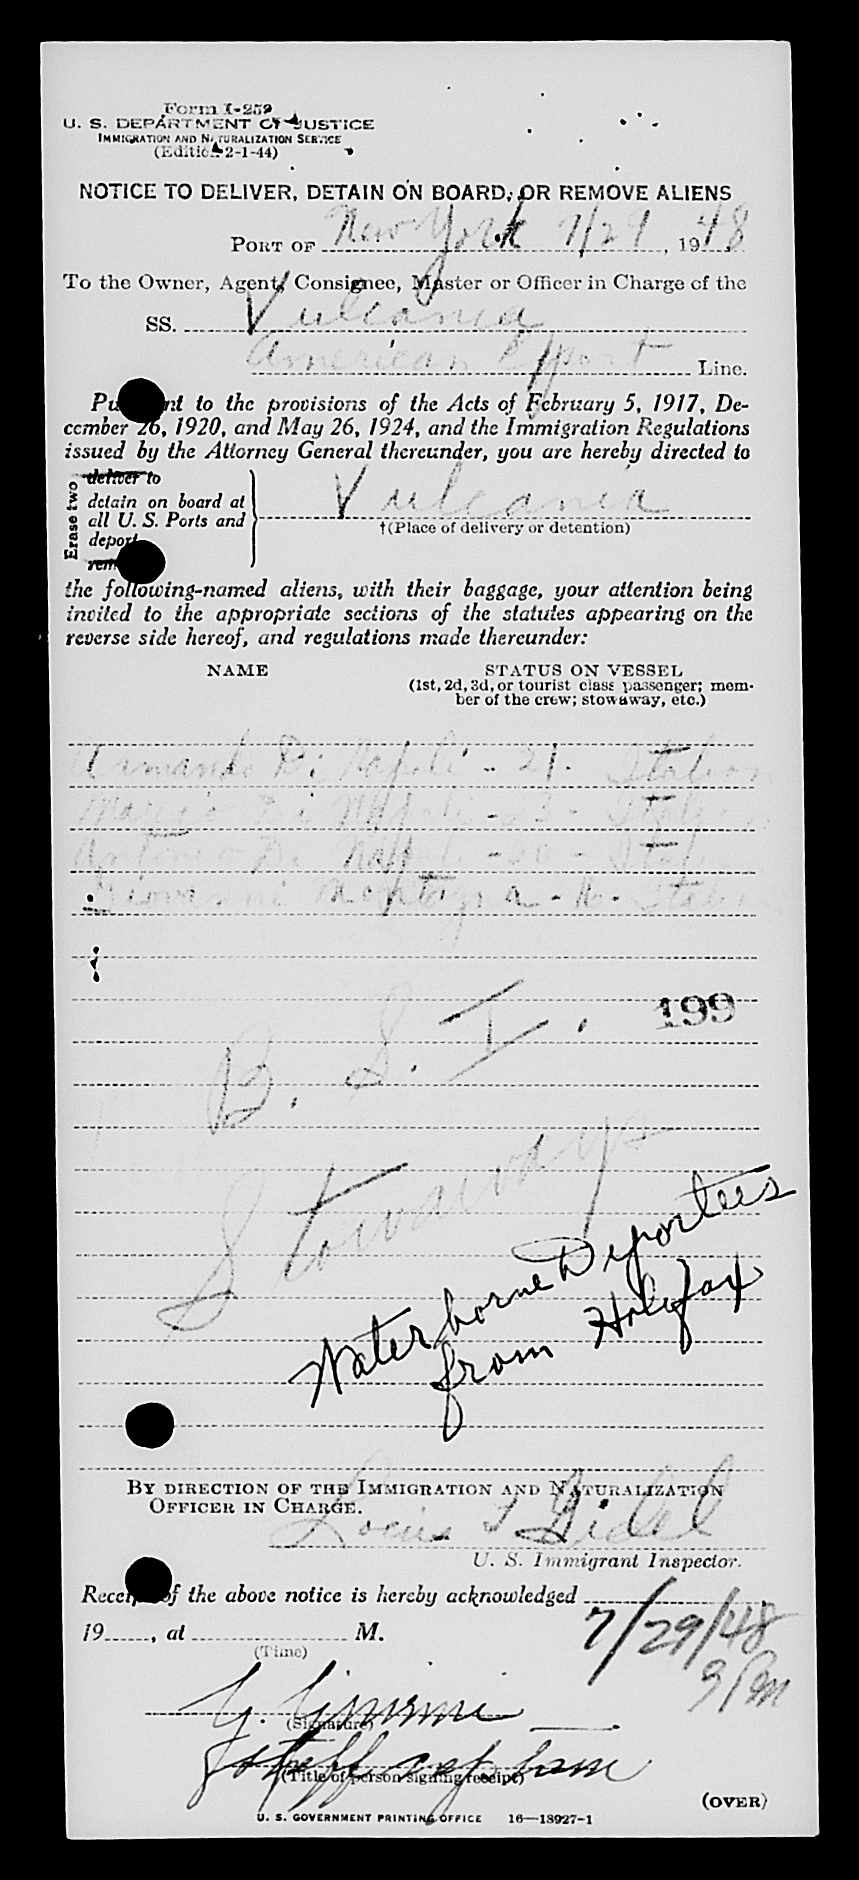 Form I-259
U. S. DEPARTMENT OF JUSTICE
IMMIGRATION AND NATURALIZATION SERVICE
(Edition 2-1-44)
NOTICE TO DELIVER, DETAIN ON BOARD, OR REMOVE ALIENS
PORT OF New York 7/29, 1948
To the Owner, Agent, Consignee, Master or Officer in Charge of the
SS. Vulcania
American Export Line.
Pursuant to the provisions of the Acts of February 5, 1917, De-
cember 26, 1920, and May 26, 1924, and the Immigration Regulations
issued by the Attorney General thereunder, you are hereby directed to
Erase two
deliver to
detain on board at
all U. S. Ports and
deport
Vulcania
†(Place of delivery or detention)
the following-named aliens, with their baggage, your attention being
invited to the appropriate sections of the statutes appearing on the
reverse side hereof, and regulations made thereunder:
NAME STATUS ON VESSEL
(1st, 2d, 3d, or tourist class passenger; mem-
ber of the crew; stowaway, etc.)
Armando Di Napoli - 21 - Italian
Mario Di Napoli - 23 - Italian
Antonio Di Napoli - Italian
Giovanni Montagna - Italian
199
B. S. I.
Stowaways
Waterborne Deportees
from Halifax
BY DIRECTION OF THE IMMIGRATION AND NATURALIZATION
OFFICER IN CHARGE.
Louis Gidel
U. S. Immigrant Inspector.
Receipt of the above notice is hereby acknowledged
19 , at M.
7/29/48
(Time)
9 PM
(Signature)
Staff captain
(Title of person signing receipt)
(OVER)
U. S. GOVERNMENT PRINTING OFFICE 16—18927-1